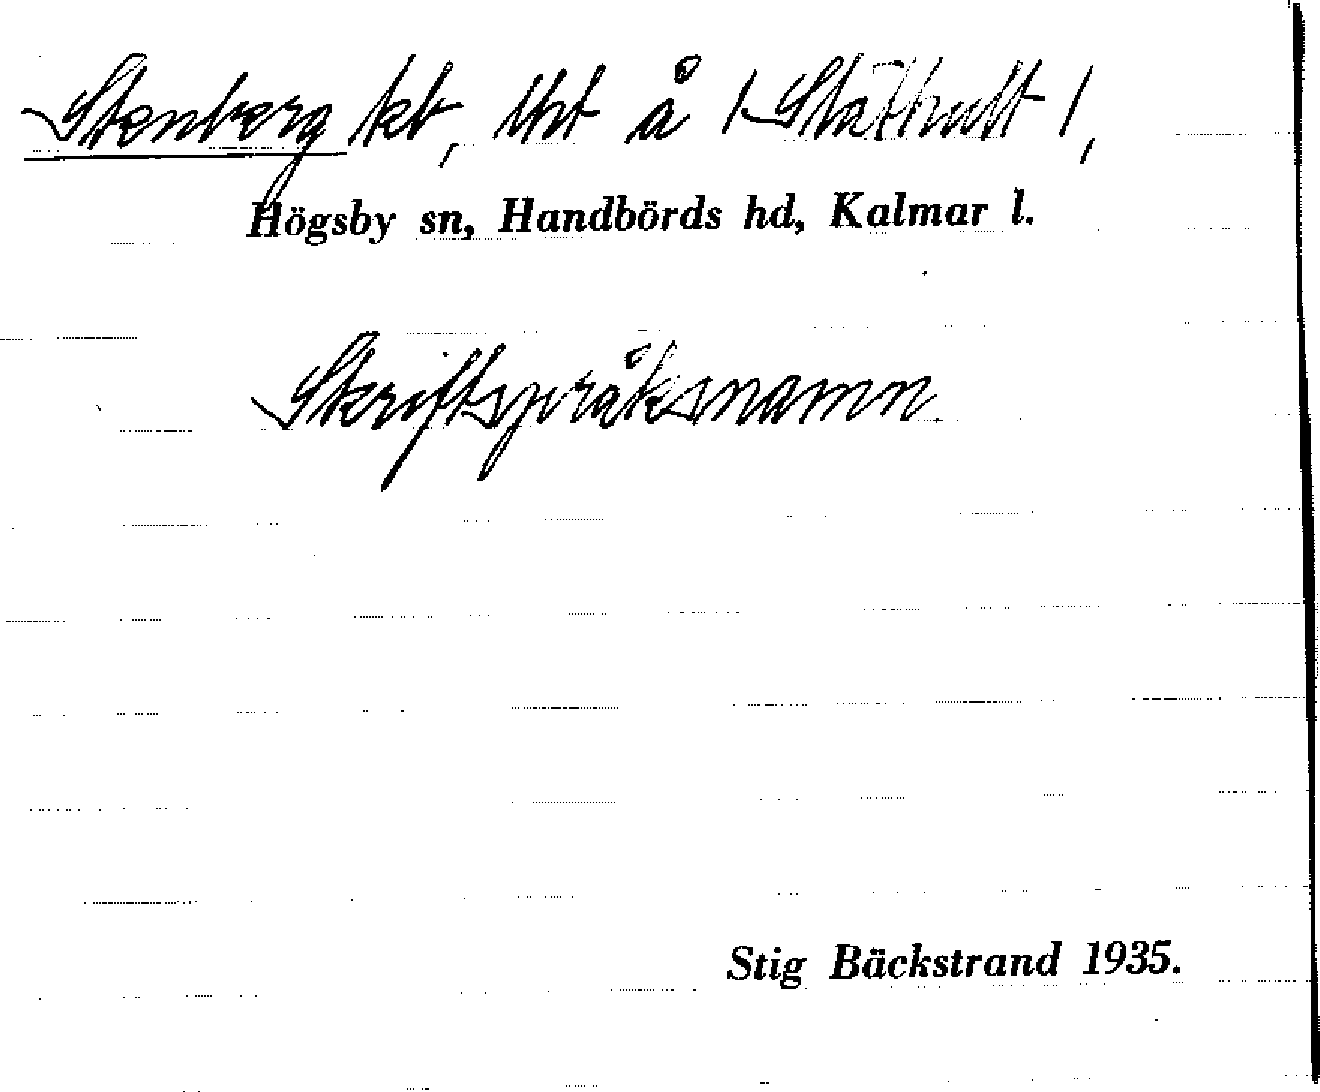 Stenberg kt, tht å 1 Stathult 1,
Högsby sn, Handbörds hd, Kalmar l.
Skriftspråksnamn.
Stig Bäckstrand 1935.